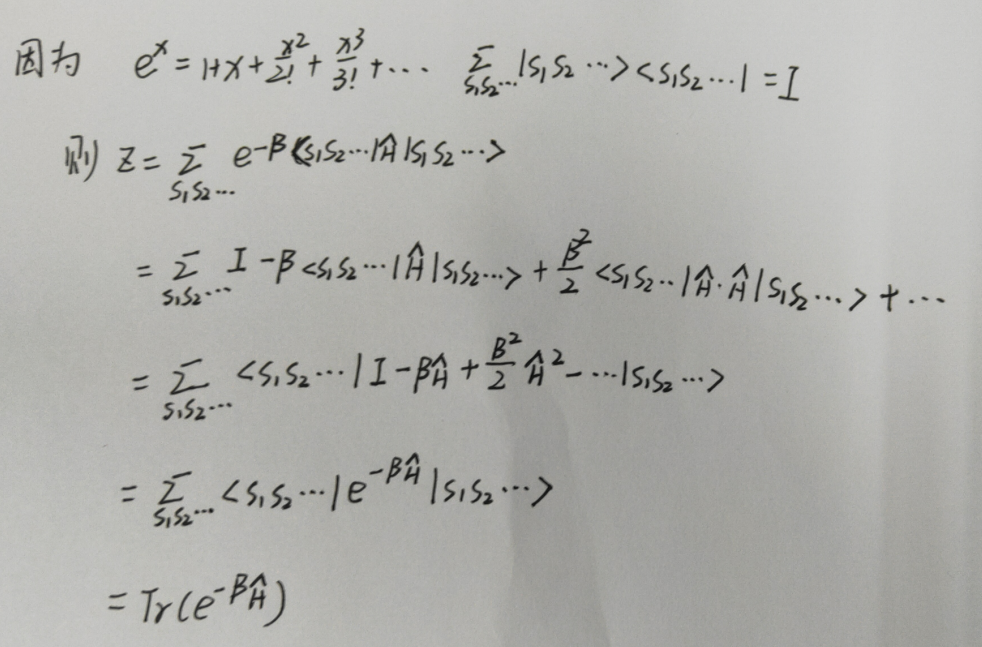 因为 e^x = 1+x+x²/2!+x³/3!+··· Σ_{S₁S₂···} |S₁S₂···><S₁S₂···| = I
则 Z = Σ_{S₁S₂···} e^{-β<S₁S₂···|Ĥ|S₁S₂···>}
= Σ_{S₁S₂···} I - β<S₁S₂···|Ĥ|S₁S₂···> + β²/2 <S₁S₂··|Ĥ·Ĥ|S₁S₂···> + ···
= Σ_{S₁S₂···} <S₁S₂···|I - βĤ + β²/2 Ĥ² - ···|S₁S₂···>
= Σ_{S₁S₂···} <S₁S₂···|e^{-βĤ}|S₁S₂···>
= Tr(e^{-βĤ})